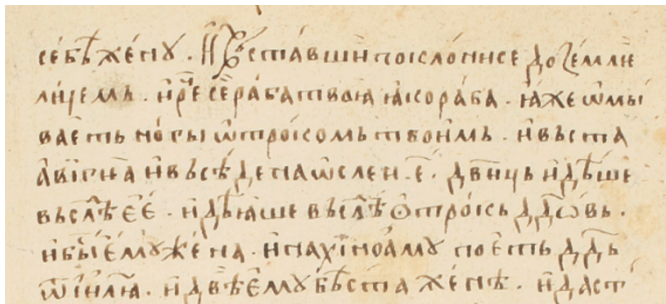 себѣ женꙋ . И҆ въставши поклонисе до землѥ
лицемь . и҆ рⷱ҇е се раба твоꙗ ꙗко раба . ꙗже ѡ҆мы
ваеть ногы ѿрокомь твои҆мь . и҆ въста
авїгеа и҆ въсѣде на ѡ҆слен . е҃ . дв҃иць и҆дѣше
въслѣ еѥ . и҆дѣꙗше въслѣ ѿрокь дв҃довь .
и҆ бы емꙋ жена . и҆ нахїноамꙋ поеть дв҃дь
ѿ і҆ꙁлꙗ . и҆ двѣ ѥмꙋ бѣста женѣ . и҆ даст